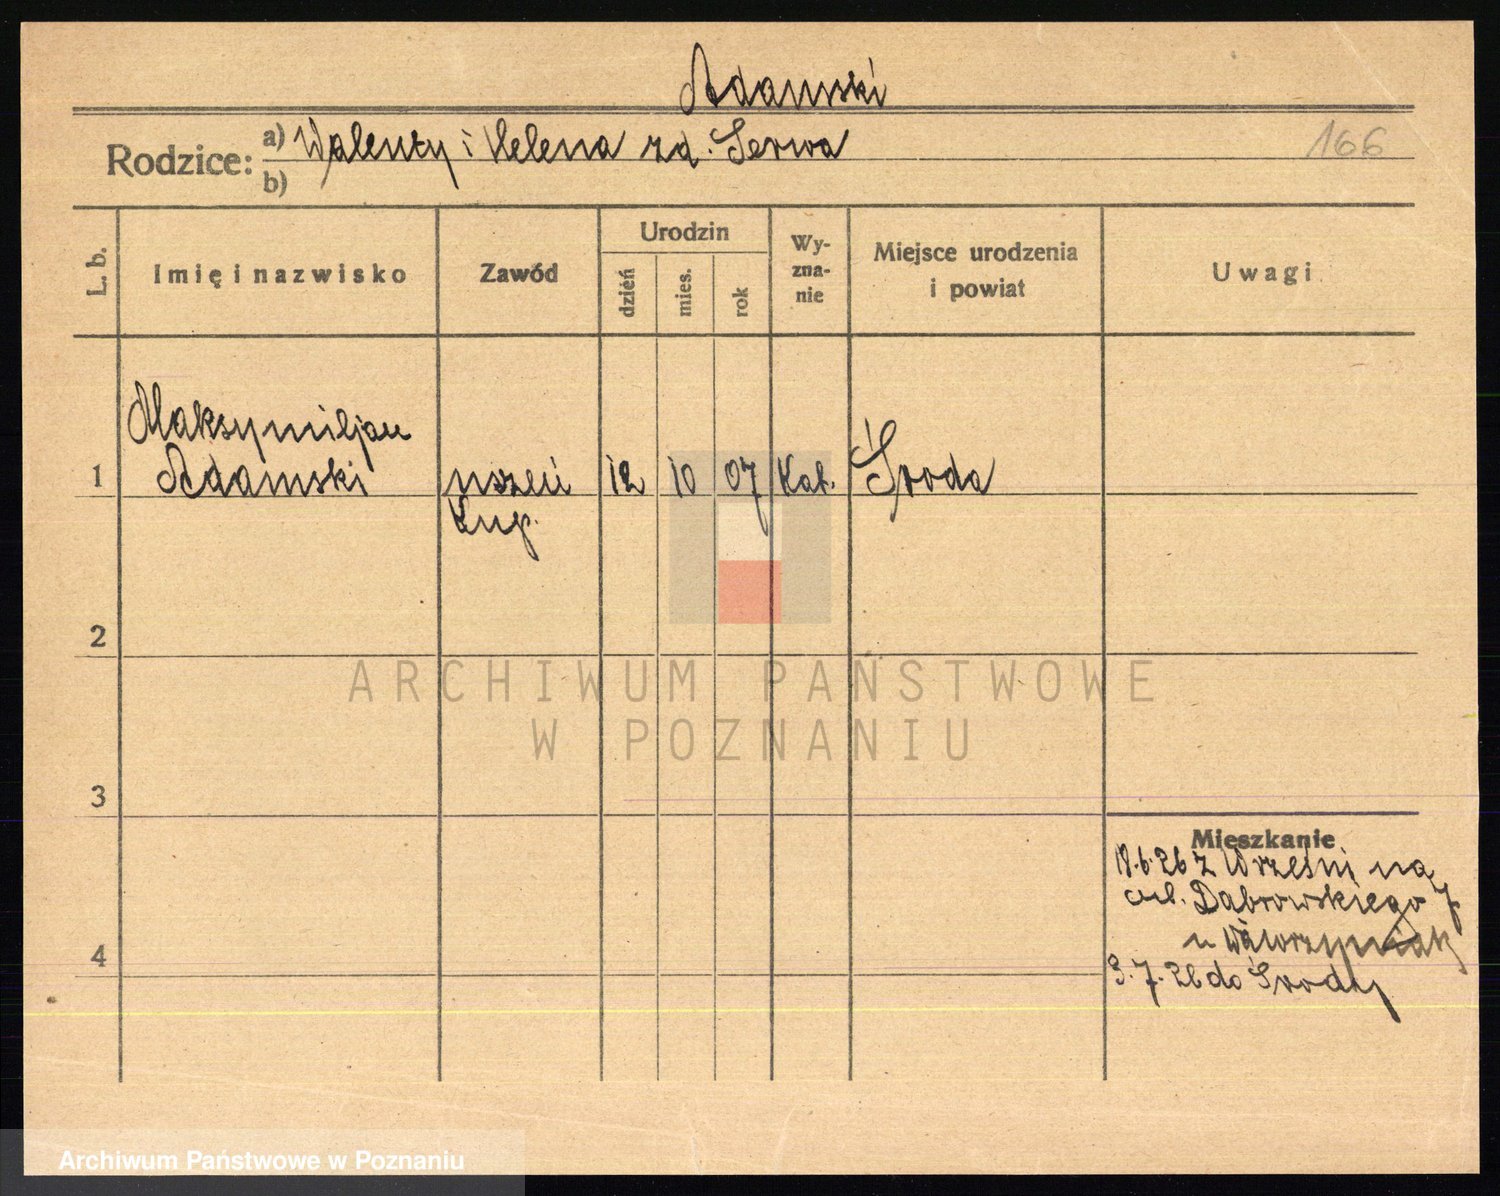 Adamski
Rodzice: a) Walenty i Helena zd. Serwa
b)
166
L. b.
Imię i nazwisko
Zawód
Urodzin
dzień
mies.
rok
Wy-
zna-
nie
Miejsce urodzenia
i powiat
Uwagi
Maksymiljan
1 Adamski uczeń 12 10 07 Kat. Środa
kup.
2
3
4
Mieszkanie
18.6.26 z Wrześni na
ul. Dąbrowskiego 7
u Wawrzyniak
3.7.26 do Środy
ARCHIWUM PAŃSTWOWE
W POZNANIU
Archiwum Państwowe w Poznaniu